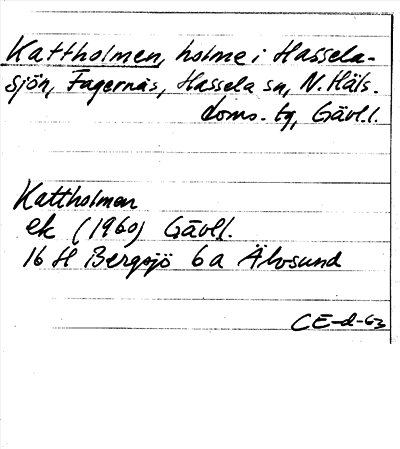 Kattholmen, holme i Hassela-
sjön, Fagernäs, Hassela sn, N. Häls.
doms. tg, Gävl.l.
Kattholmen
ek (1960) Gävl.l.
16 H Bergsjö 6a Älvsund
CE-d-63